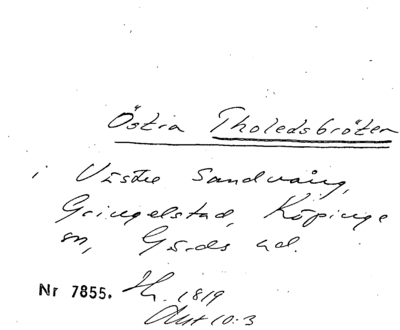 Östra Tholedsbröten
i Västra Sandvång,
Gringelstad, Köpinge
sn, Gärds hd.
Nr 7855. Hh. 1819
Akt 10:3